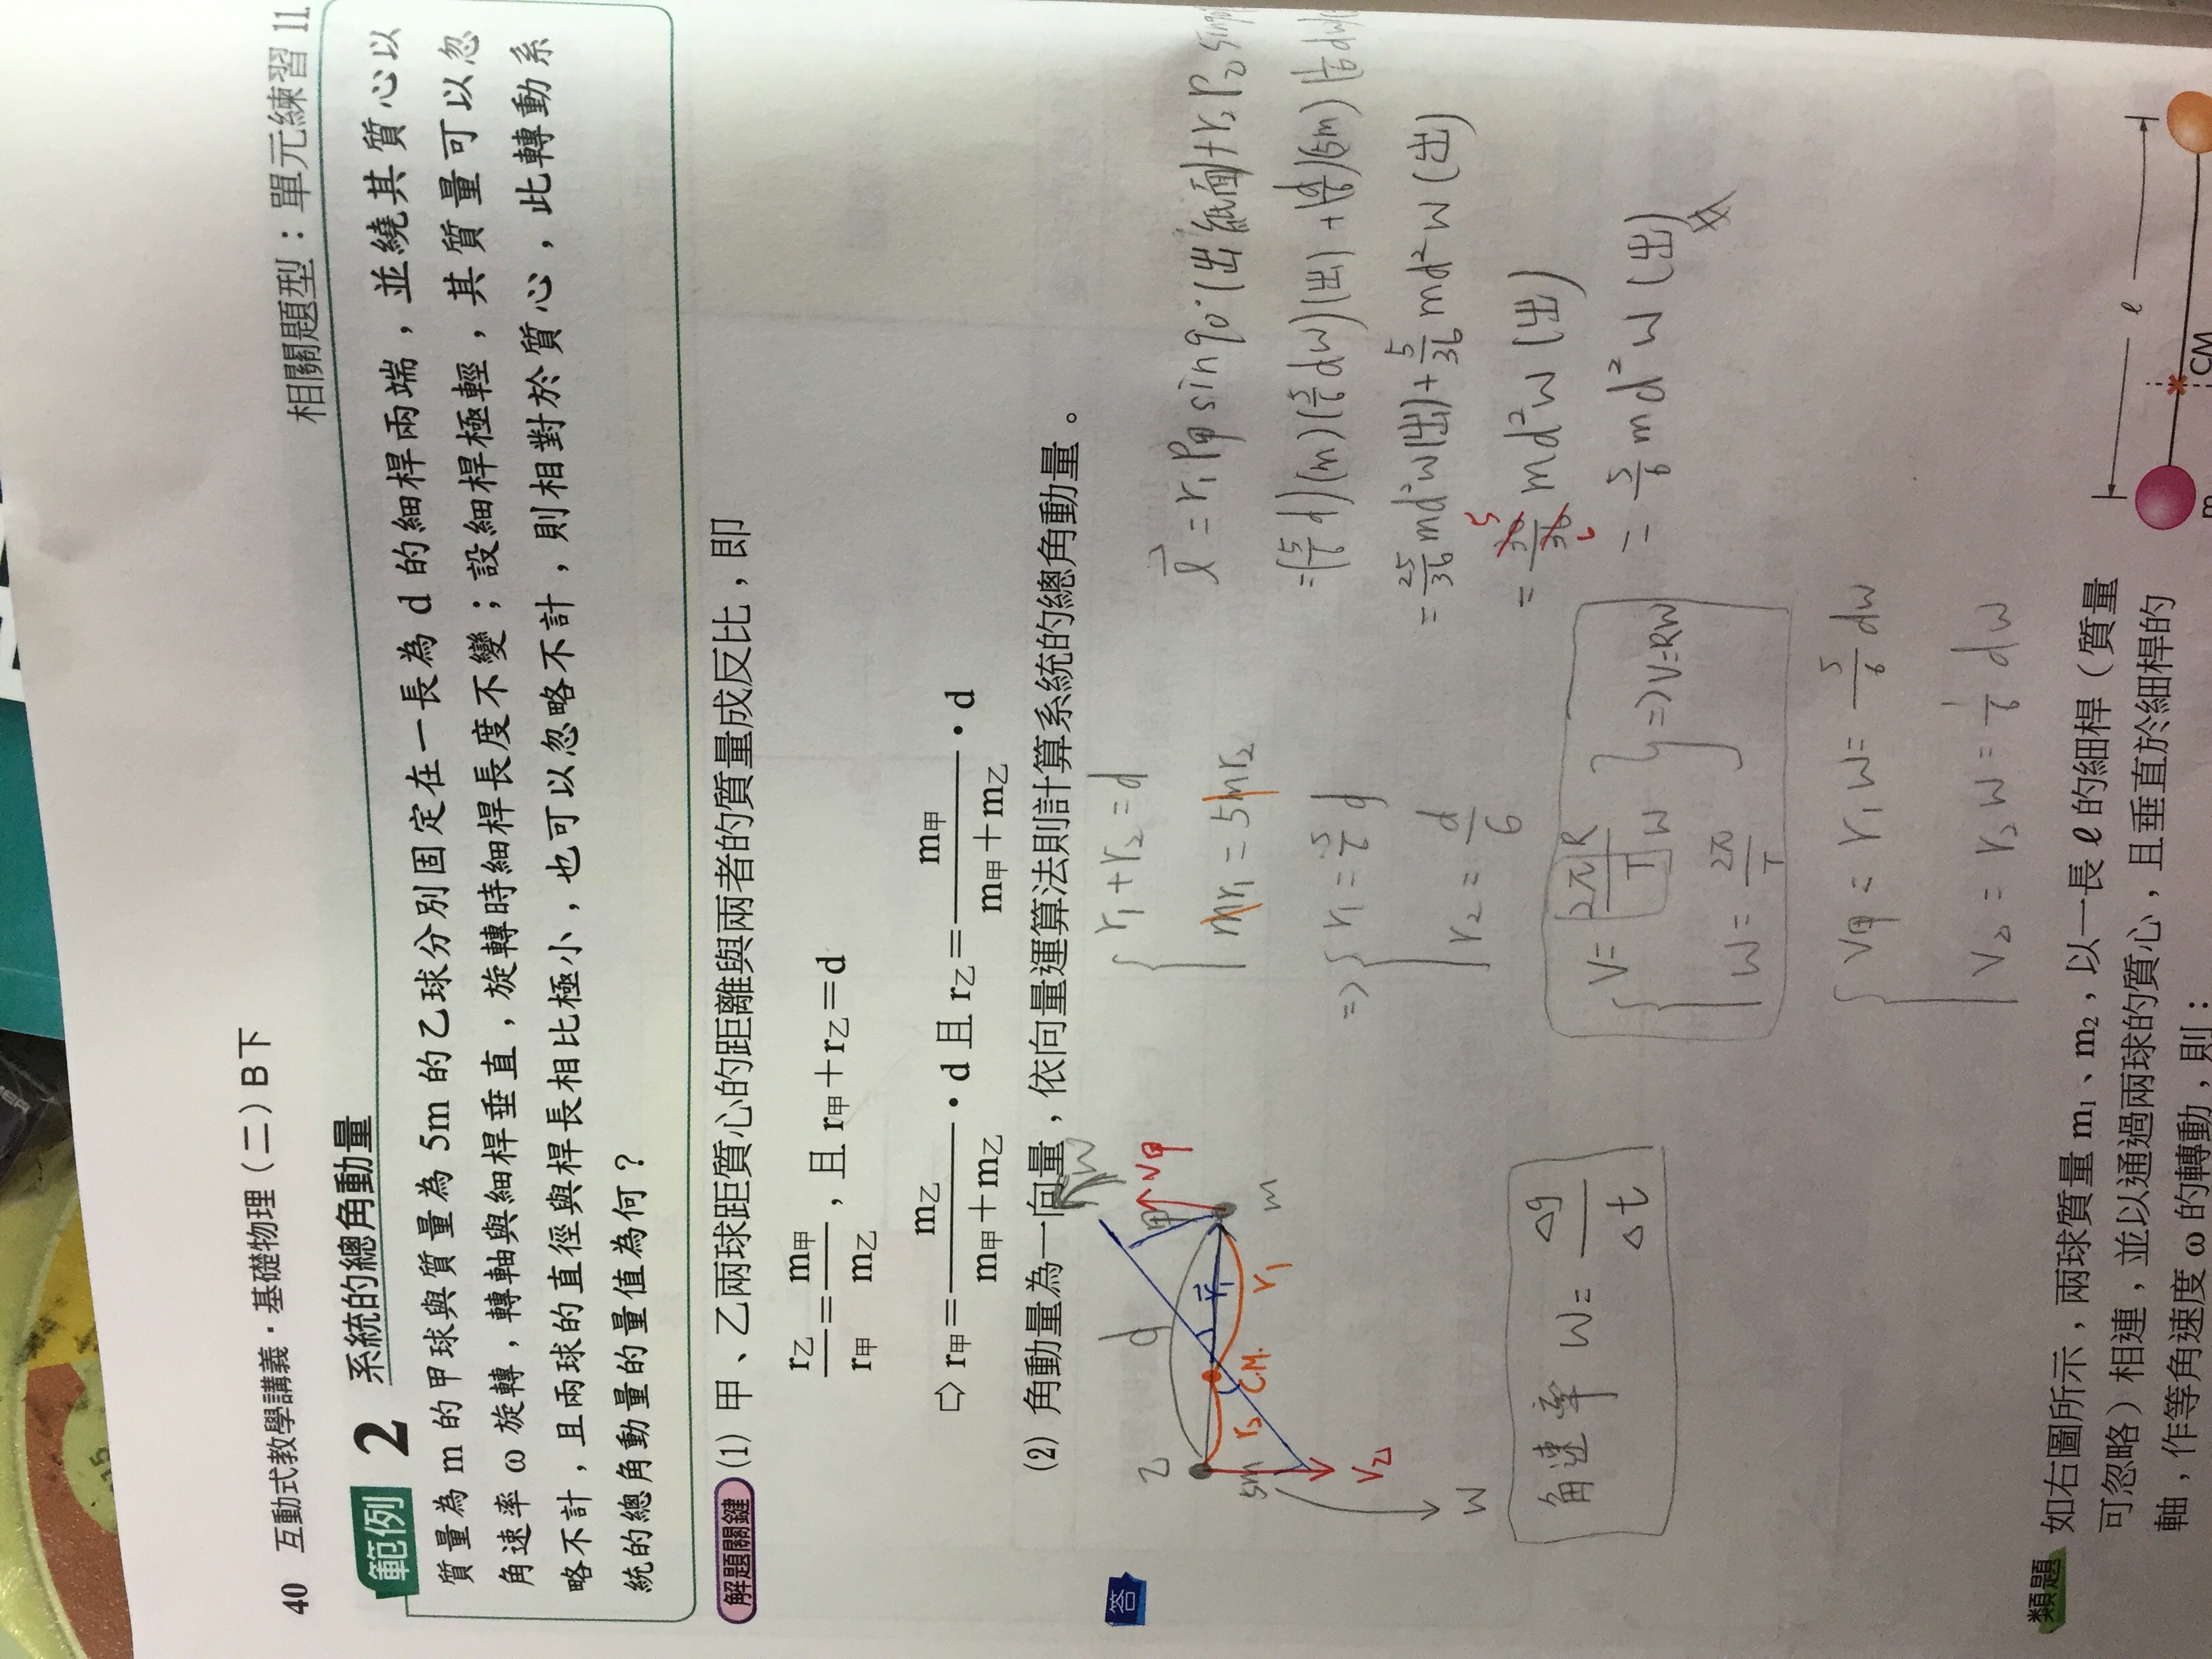 40 互動式教學講義·基礎物理（二）B下
相關題型：單元練習 11.
範例 2 系統的總角動量
質量為 m 的甲球與質量為 5m 的乙球分別固定在一長為 d 的細桿兩端，並繞其質心以
角速率 ω 旋轉，轉軸與細桿垂直，旋轉時細桿長度不變；設細桿極輕，其質量可以忽
略不計，且兩球的直徑與桿長相比極小，也可以忽略不計，則相對於質心，此轉動系
統的總角動量的量值為何？
解題關鍵 (1) 甲、乙兩球距質心的距離與兩者的質量成反比，即
r乙/r甲＝m甲/m乙，且 r甲＋r乙＝d
⇨ r甲＝m乙/(m甲＋m乙)·d 且 r乙＝m甲/(m甲＋m乙)·d
(2) 角動量為一向量，依向量運算法則計算系統的總角動量。
答
乙 d 甲 W
V甲
5m r2 C.M. r1 r1 m
V乙
W
角速率 W = Δθ/Δt
{ r1+r2=d
mr1=5mr2
=> { r1=5/6 d
r2=d/6
{ V=2πR/T W
W=2π/T } => V=RW
{ V甲 = r1W = 5/6 dW
V乙 = r2W = 1/6 dW
l = r1P甲 sin90°(出紙面)+r2P乙 sin90
=(5/6 d)(m)(5/6 dW)(出)+(d/6)(5m)(1/6 dW)
=25/36 md²W(出)+5/36 md²W(出)
=30/36 md²W(出)
5
6
=5/6 md²W(出)
類題 如右圖所示，兩球質量 m1、m2，以一長 ℓ 的細桿（質量
可忽略）相連，並以通過兩球的質心，且垂直於細桿的
軸，作等角速度 ω 的轉動，則：
ℓ
CM